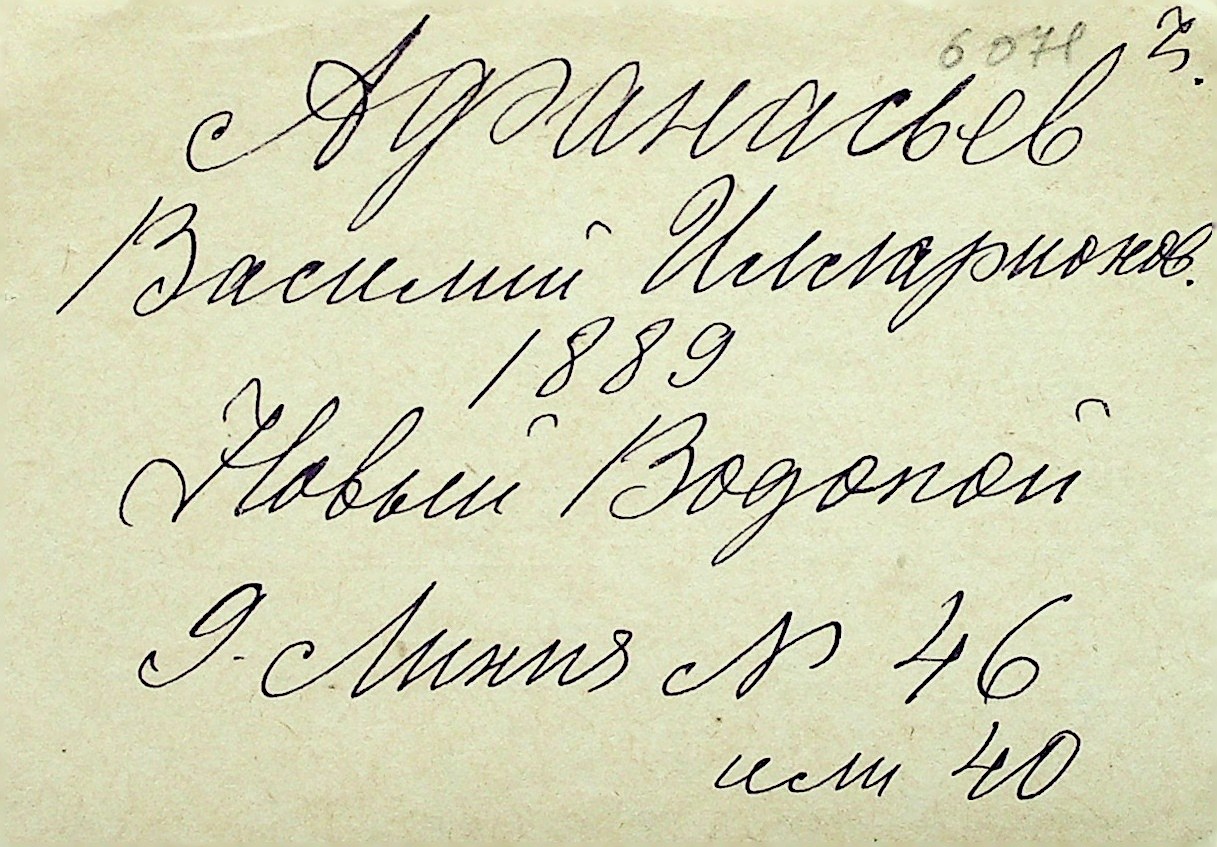 6071 Ч.
Афанасьев
Василий Илларионов.
1889
Новый Водопой
9. Линия № 46
или 40